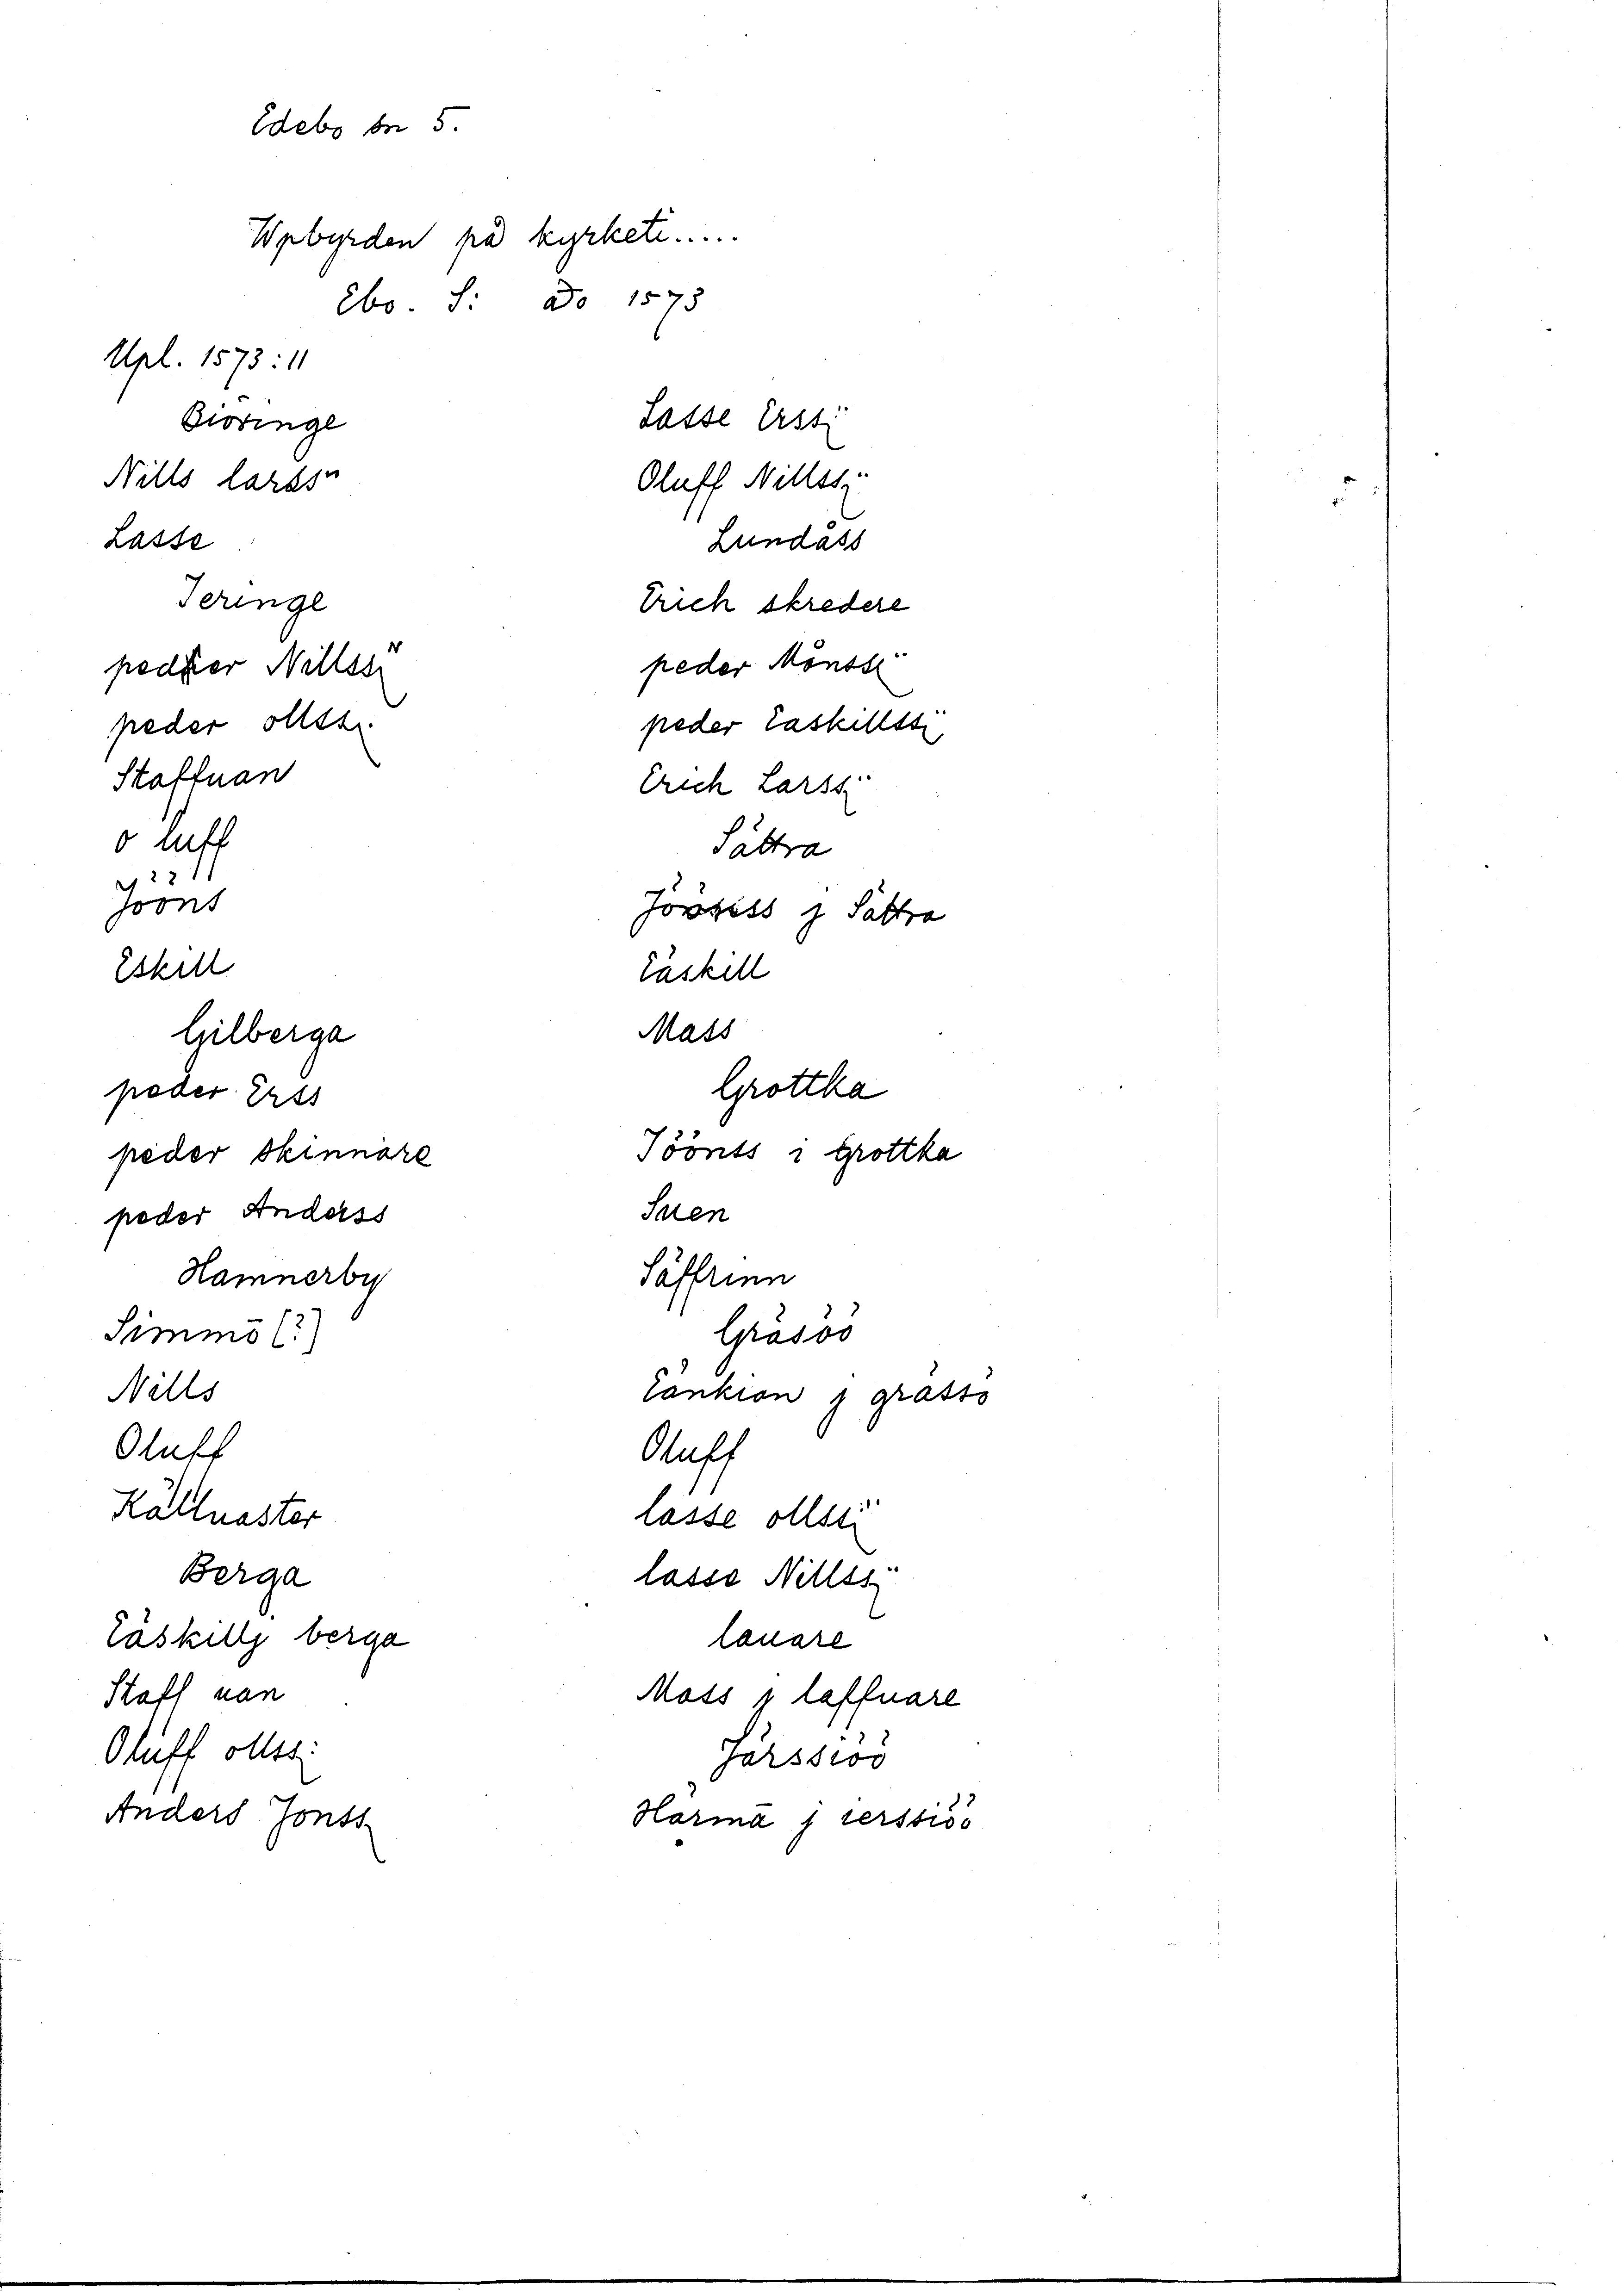 Edebo sn 5.
Wpbyrden på kyrketi.....
Ebo. S: ao 1573
Upl. 1573:11
Biöringe
Nills larssn
Lasse
Jeringe
pedher Nillss
peder ollss
Staffuan
o luff
Jööns
Eskill
Gilberga
peder Erss
peder skinnare
peder Anderss
Hamnerby
Simmö (?)
Nills
Oluff
Källuaster
Berga
Eäskill j berga
Staff uan
Oluff ollss:
Anders Jonss
Lasse Erss
Oluff Nillss
Lundåss
Erich skredere
peder Mönss
peder Easkillss
Erich Larss
Sättra
j Sättra
Eäskill
Mass
Grottka
Jöönss i Grottka
Suen
Säffrinn
Gräsöö
j grässö
Oluff
lasse ollss
lasse Nillss
lauare
Mass j laffuare
Järssiöö
Härmä j ierssiöö